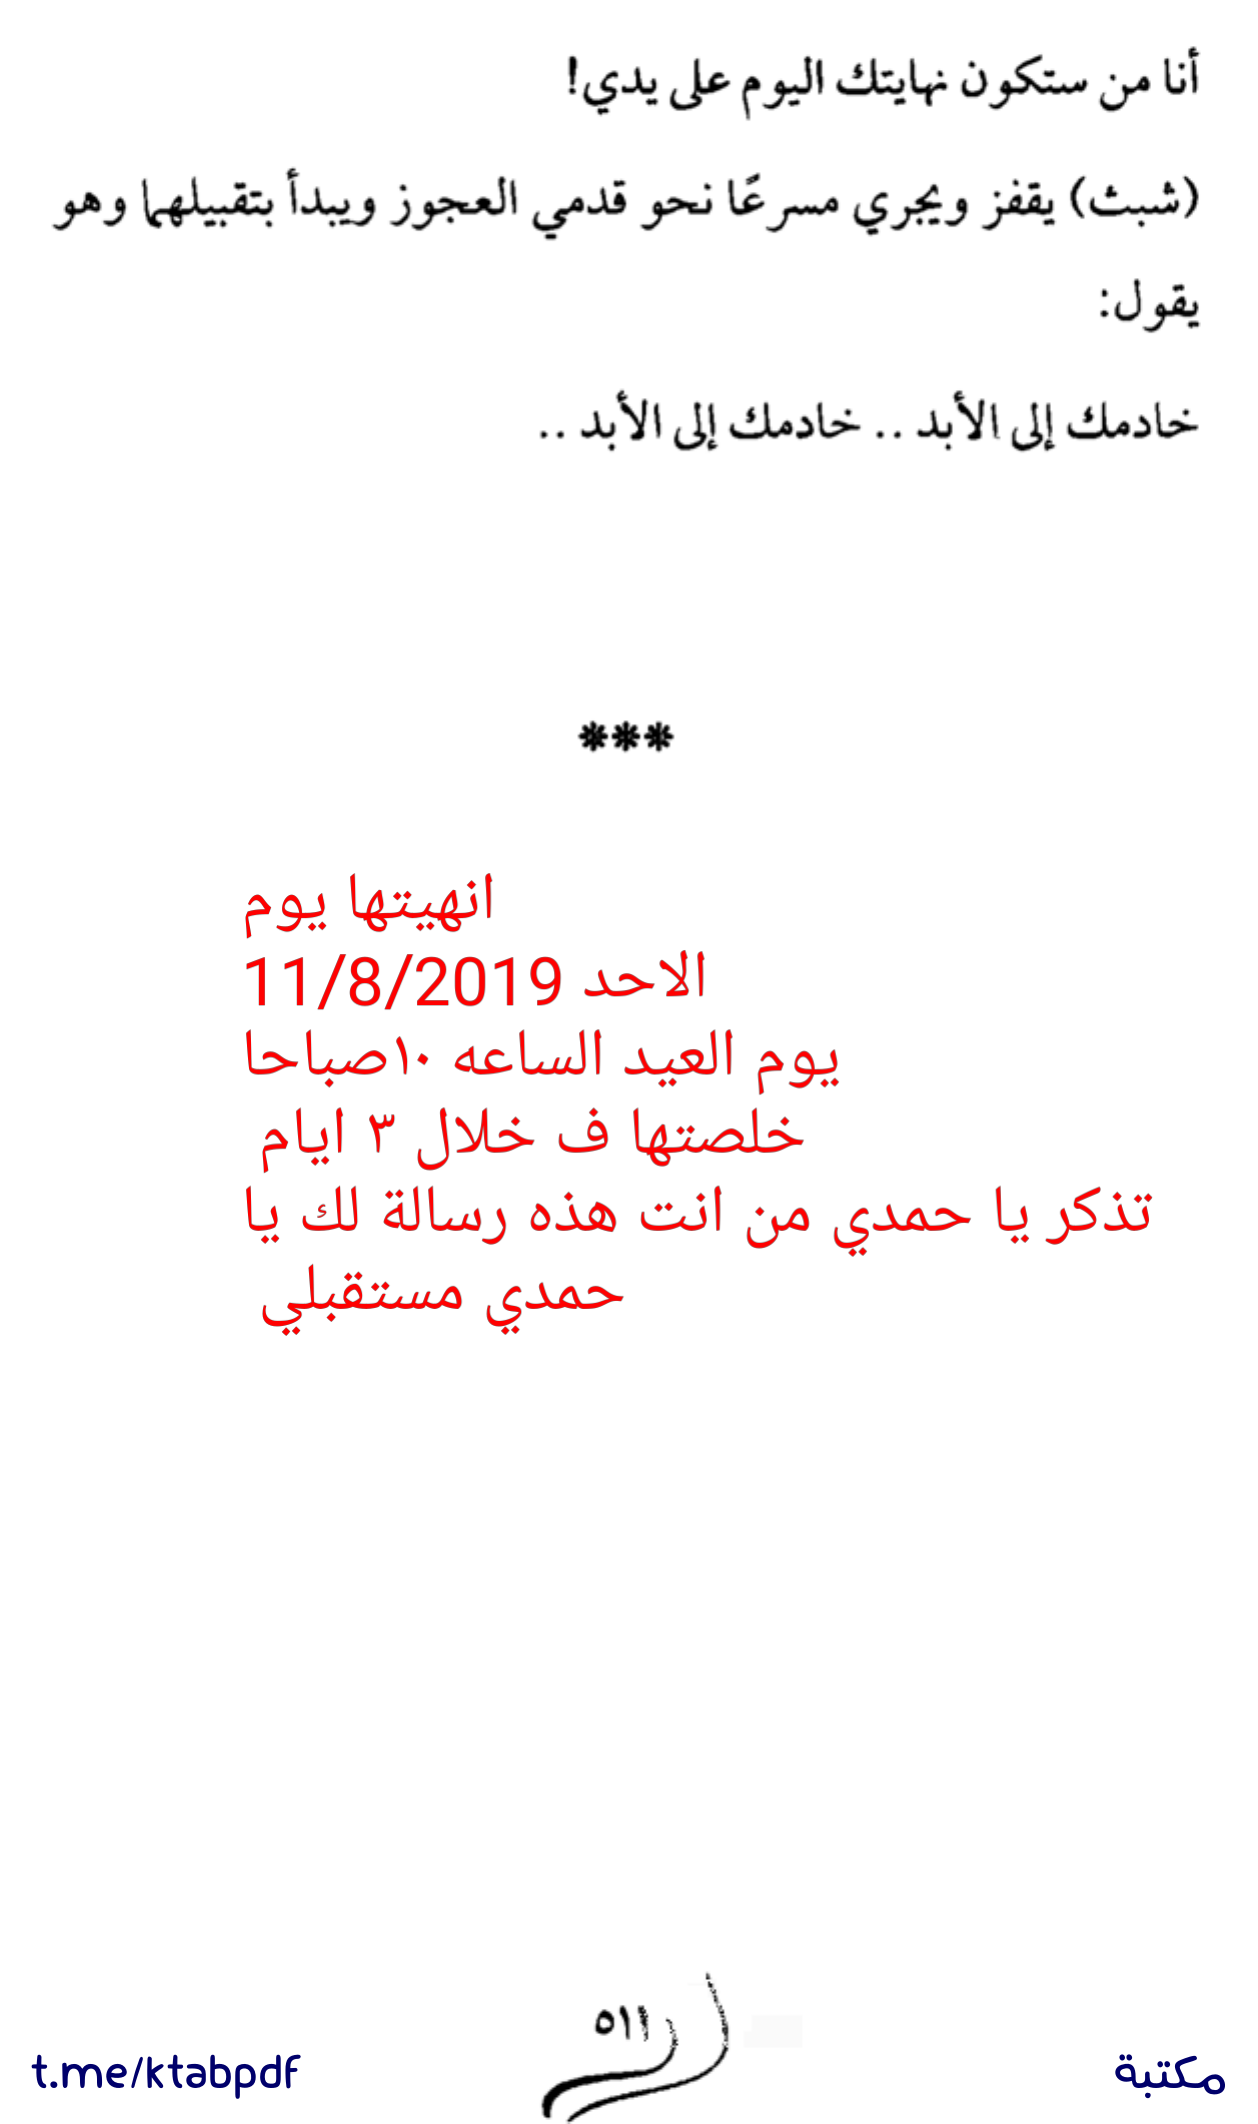 أنا من ستكون نهايتك اليوم على يدي!
(شبث) يقفز ويجري مسرعًا نحو قدمي العجوز ويبدأ بتقبيلهما وهو
يقول:
خادمك إلى الأبد .. خادمك إلى الأبد ..
***
انهيتها يوم
الاحد 11/8/2019
يوم العيد الساعه ١٠صباحا
خلصتها ف خلال ٣ ايام
تذكر يا حمدي من انت هذه رسالة لك يا
حمدي مستقبلي
t.me/ktabpdf
مكتبة